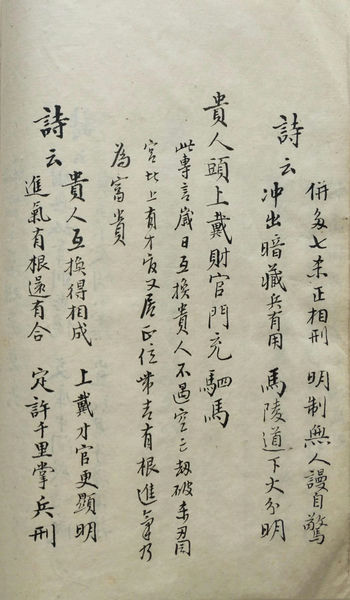 詩云
併多七杀正相刑 明制無人謾自驚
冲出暗藏兵有用 馬陵道下火分明
貴人頭上戴財官門充駟馬
此專言歲日互換貴人不遇空亡劫破
宮此上有才官又居正位帶吉有根進氣乃
為富貴
詩云
貴人互換得相成 上戴才官更顯明
進氣有根還有合 定許千里掌兵刑